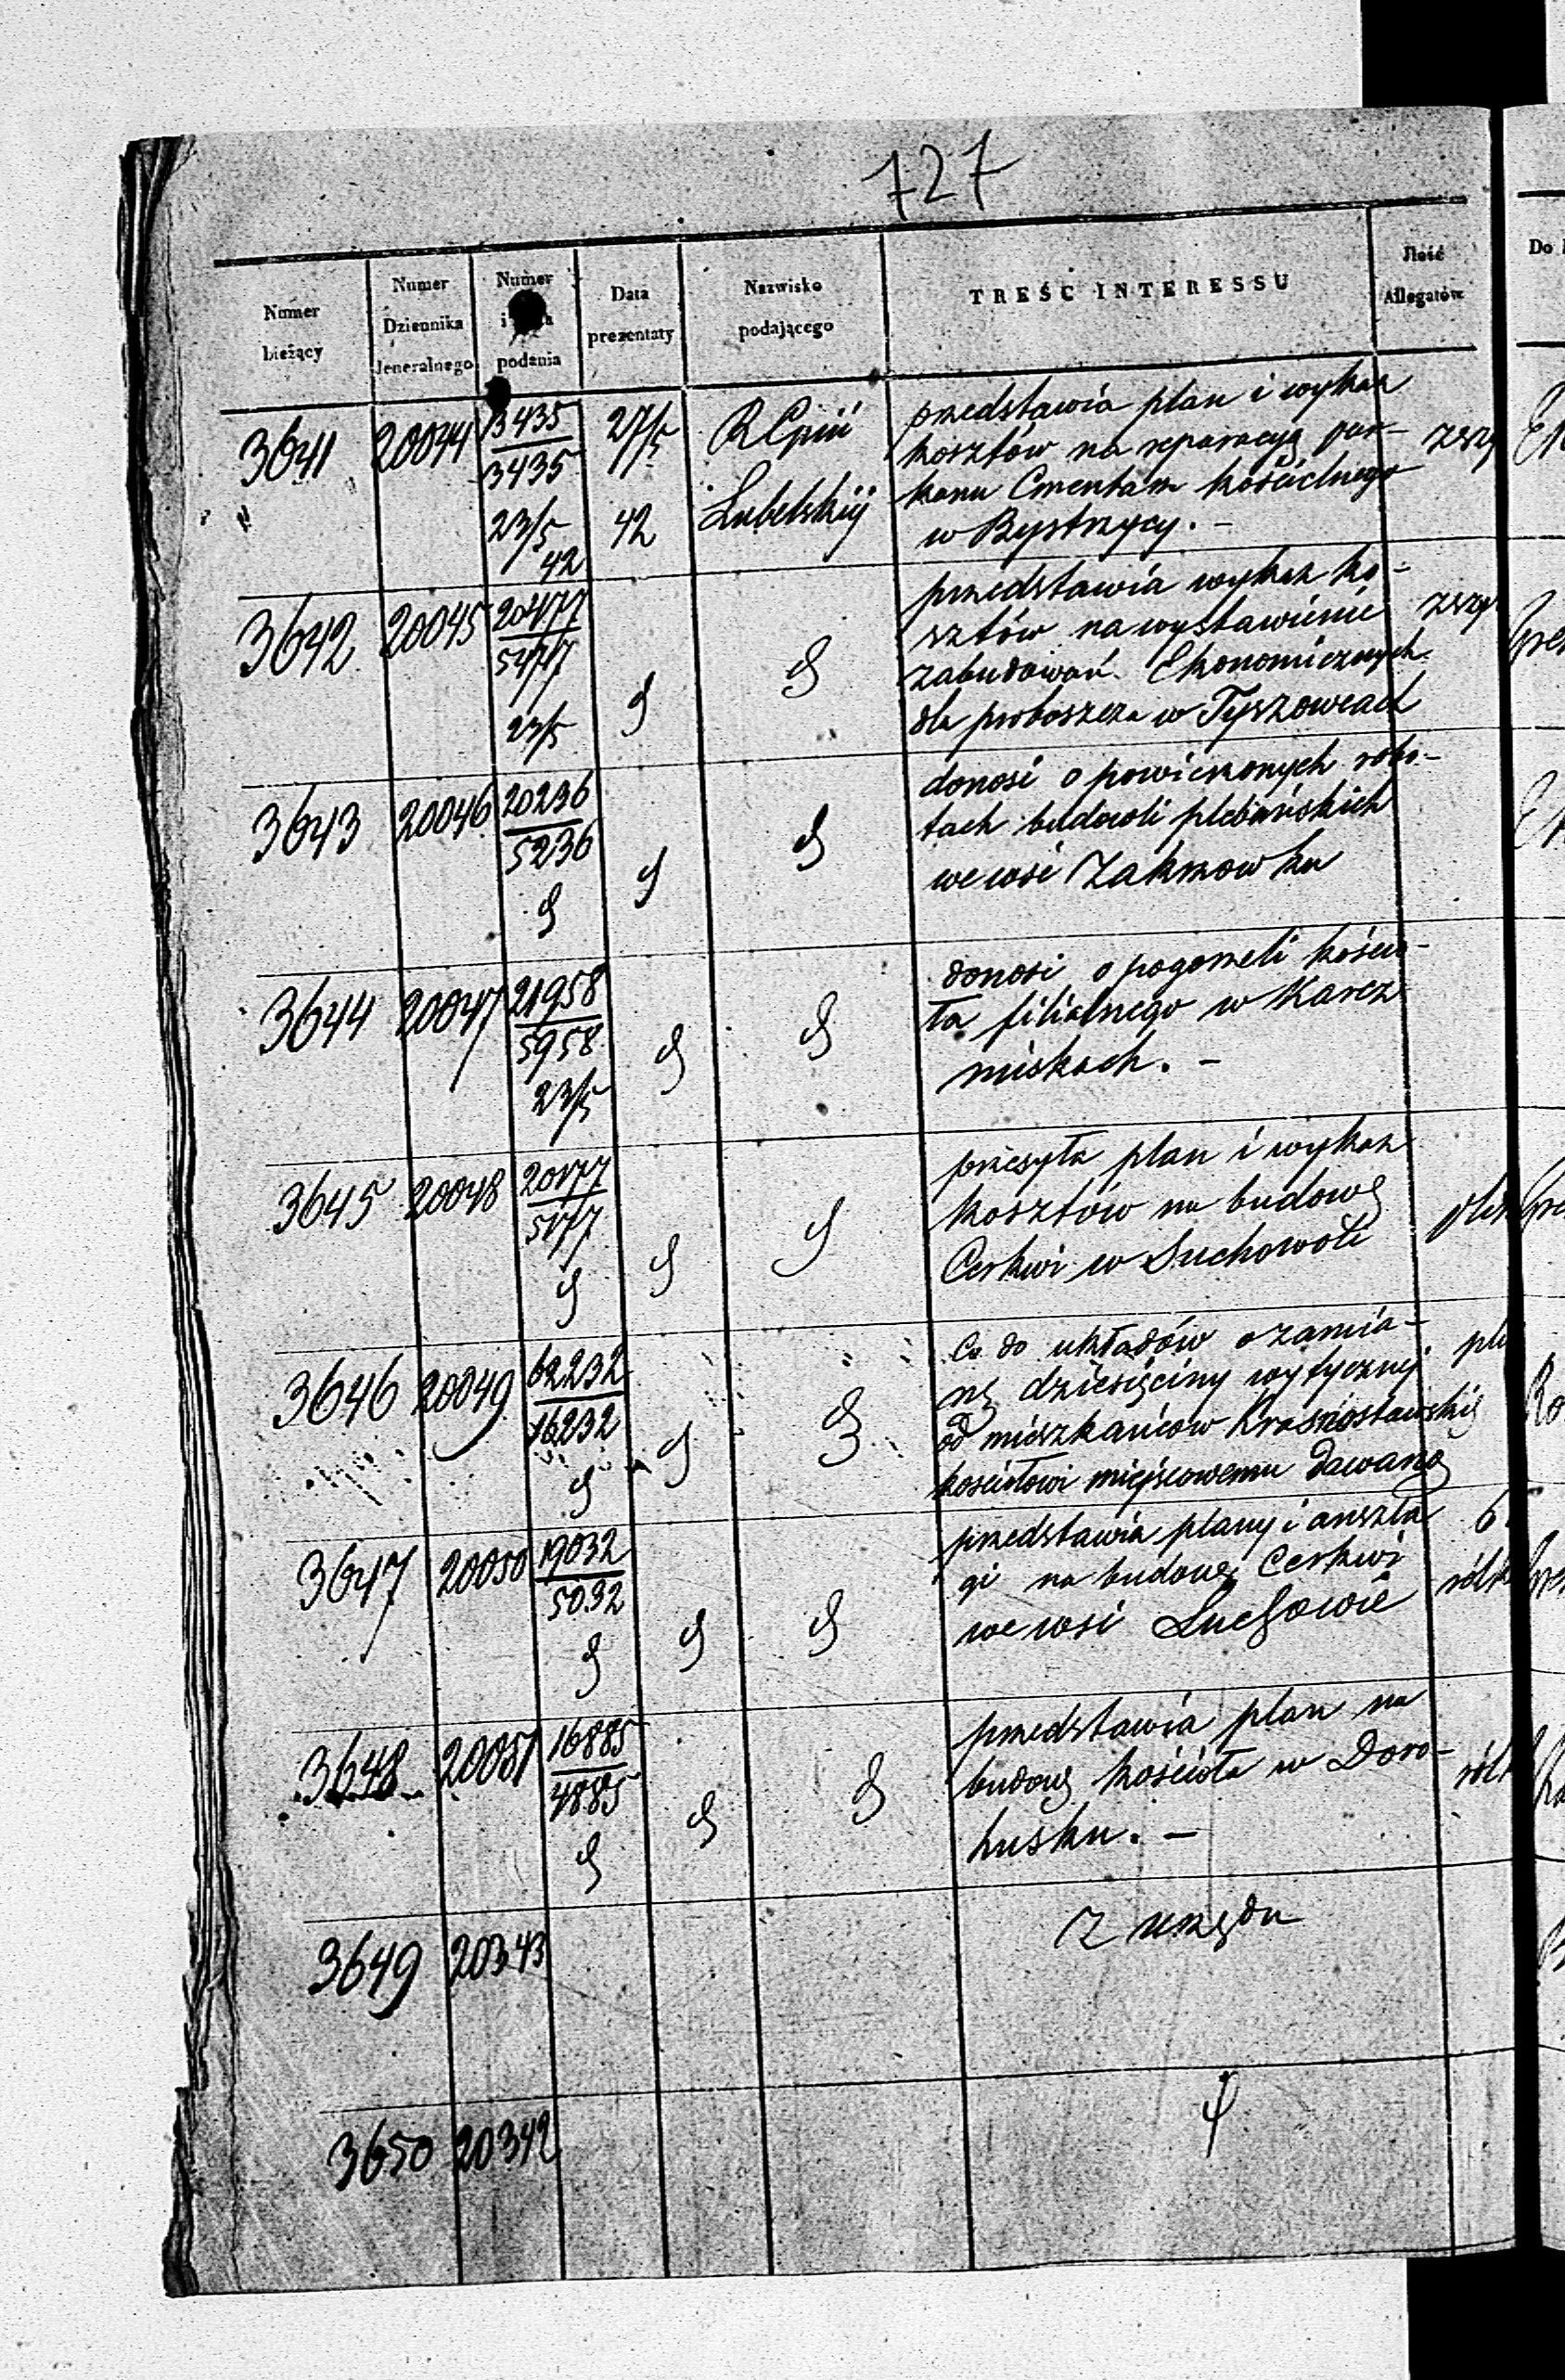 727
Numer bieżący
Numer Dziennika Jeneralnego
Numer i podania
Data prezentaty
Nazwisko podającego
TREŚC INTERESSU
Ilość Allegatów
3641 20044 13435 27/5 przedstawia plan i wykaz
3435 kosztów na reparacyą par-
23/5 42 Lubelskij kanu Cmentarza kościelnego
42 w Bystrzycy. -
3642 20045 20477 przedstawia wykaz ko-
5477 sztów na wystawienie
zabudowań Ekonomicznych
23/5 dla proboszcza w Tyszowcach
3643 20046 20236 donosi o powierzonych robo-
5236 tach budowli plebańskich
we wsi Zakrzowku
3644 20047 21958 donosi o pogorzeli kościo-
5958 ła filialnego w Karcz
23/5 miskach. -
3645 20048 20177 przesyła plan i wykaz
5177 kosztów na budowę
Cerkwi w Suchowoli
3646 20049 62232 Co do układów o zamia-
16232 nę dziesięciny wytycznej
od mieszkańców Krasnostawskich
kościołowi miejscowemu dawaną
3647 20050 19032 przedstawia plany i anszla
5032 gi na budowę Cerkwi
we wsi
3648 20051 16885 przedstawia plan na
4885 budowę kościoła w Doro-
husku. -
3649 20343 Z urzędu
3650 20342